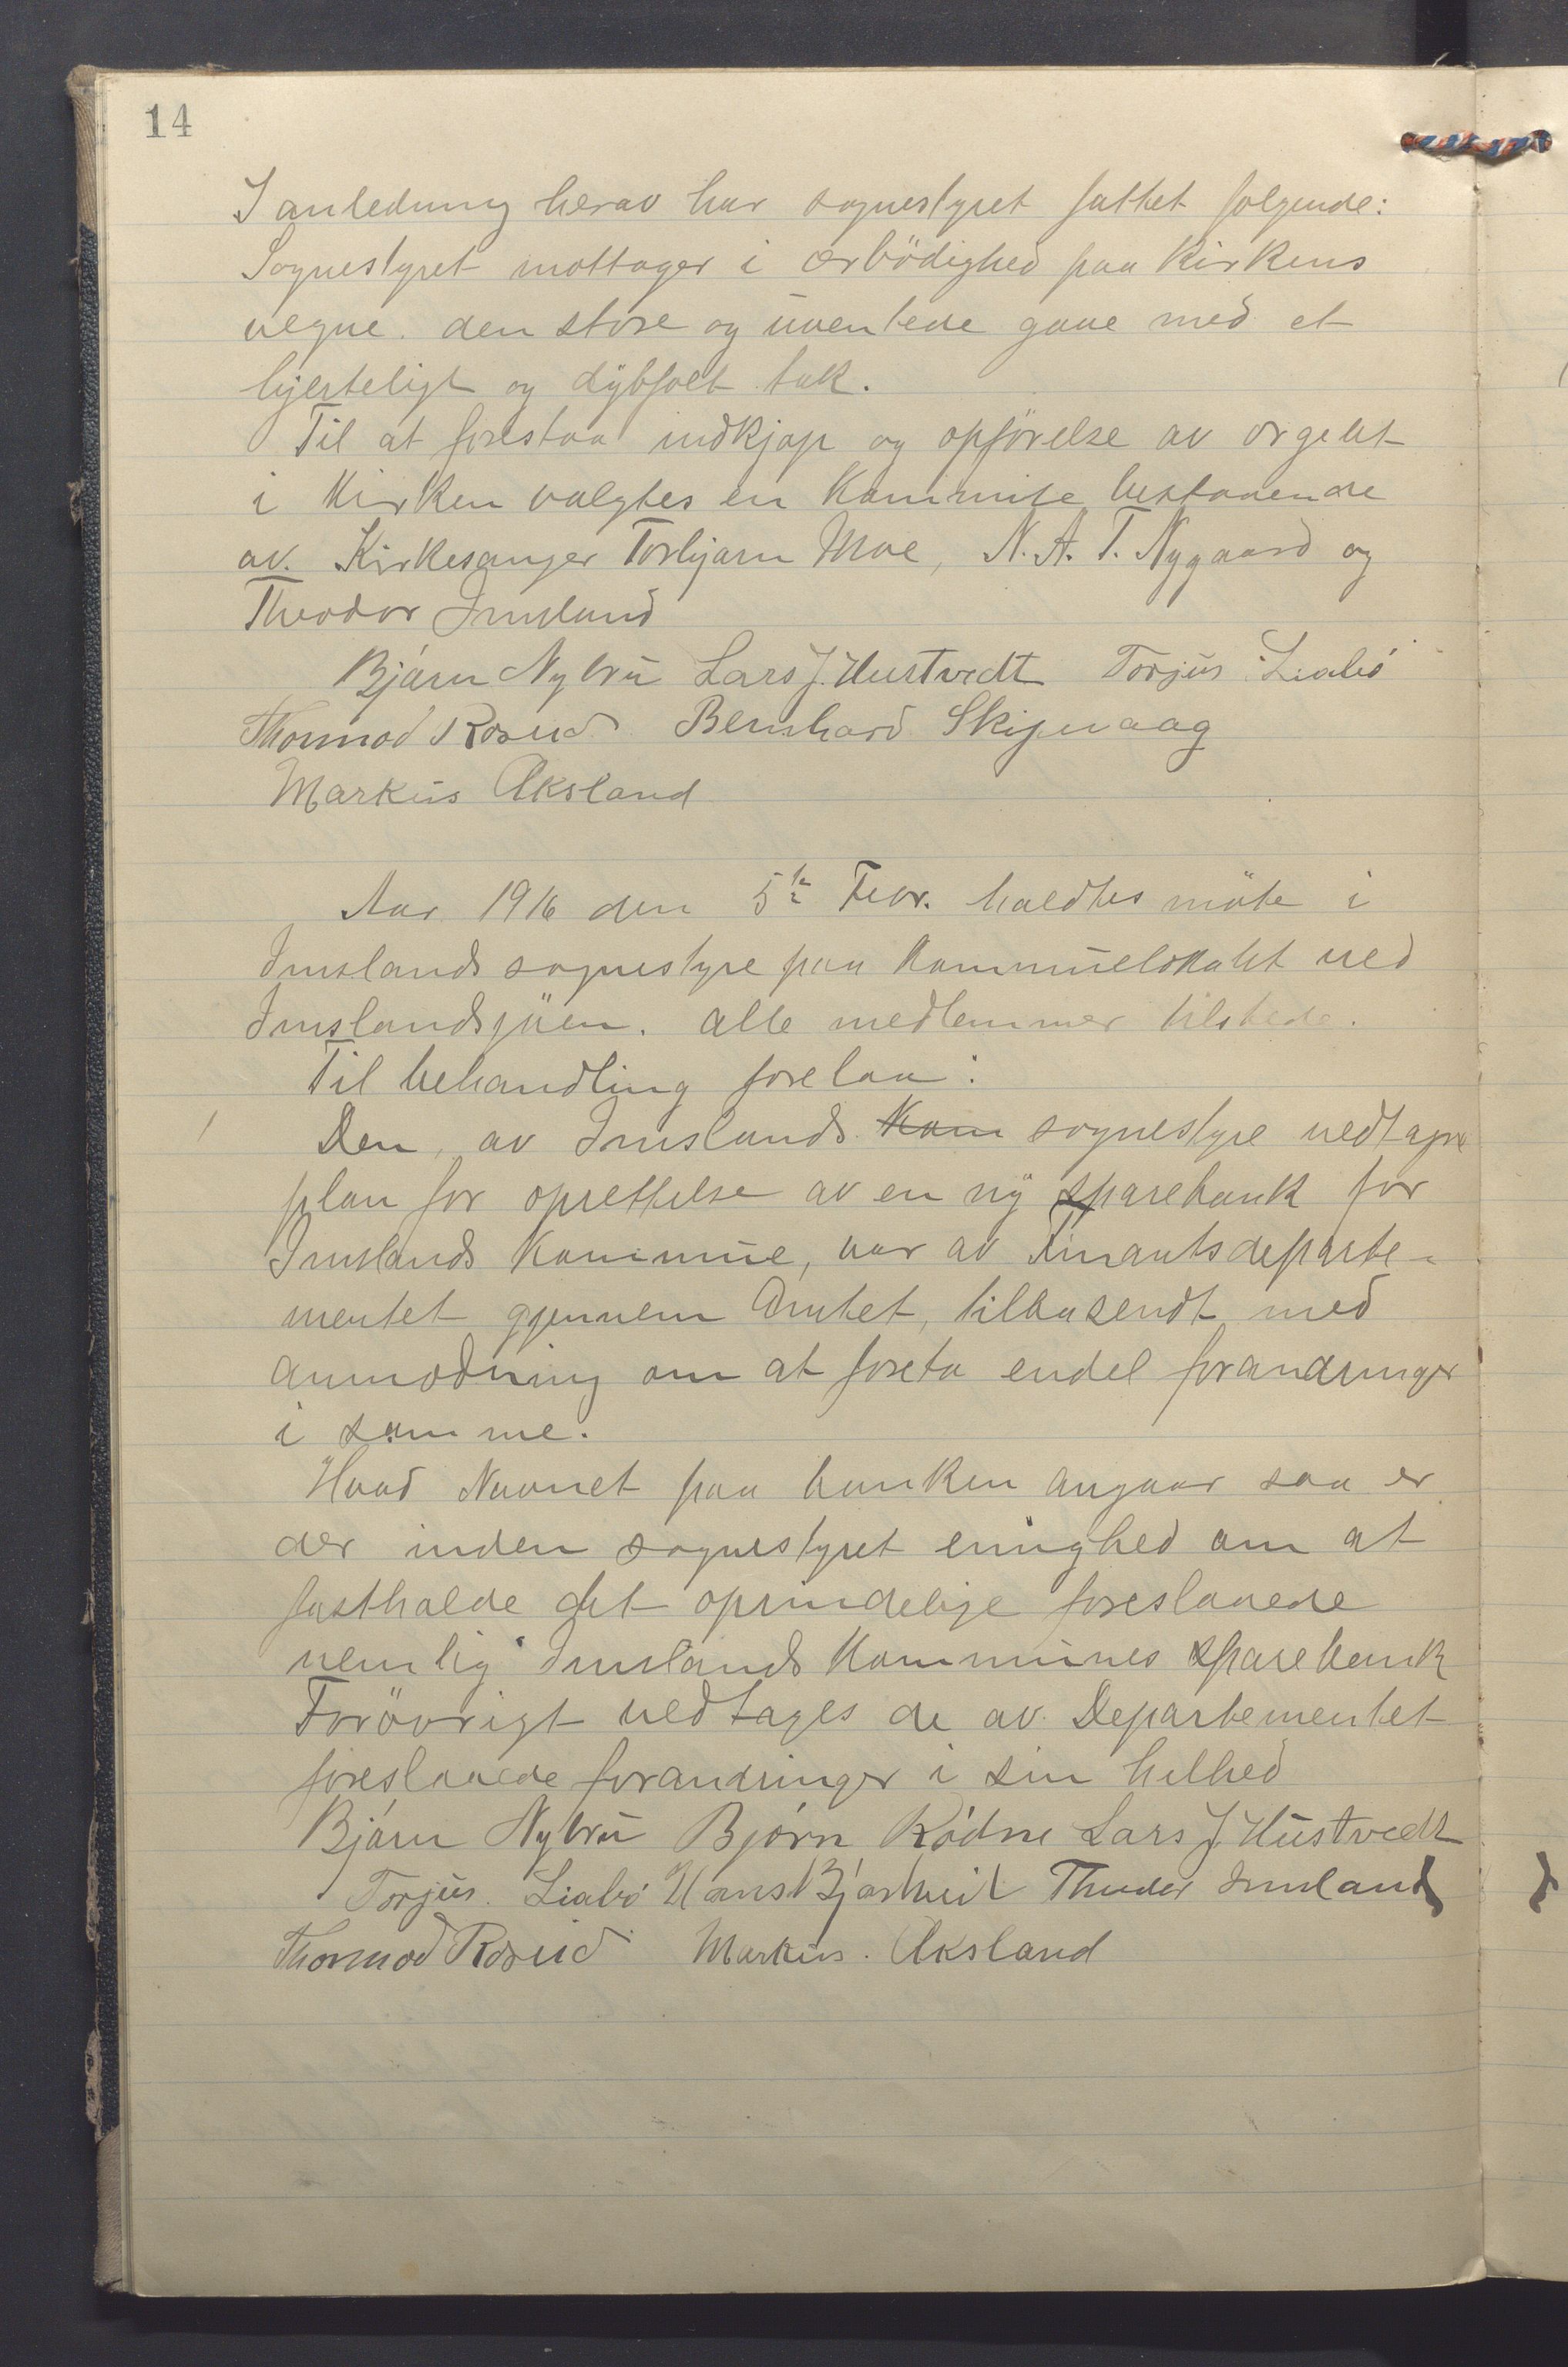 14
I anledning herav har sognestyret fattet følgende:
Sognestyret mottager i ærbödighed paa Kirkens
vegne den store og uventede gave med et
hjerteligt og dybfølt tak.
Til at forestaa indkjøp og opförelse av orgelet
i Kirken valgtes en Kommite bestaaende
av Kirkesanger Torbjørn Moe, N. A. T. Nygaard og
Theodor Imsland
Bjørn Nybru Lars J. Hustvedt Torjus Liabö
Thormod Rosud Bernhard Skipevaag
Markus Aksland
Aar 1916 den 5te Febr. holdtes möte i
Imslands sognestyre paa Kommunelokalet ved
Imslandsjöen. Alle medlemmer tilstede.
Til behandling forelaa:
1 Den av Imslands Kom sognestyre vedtagne
plan for oprettelse av en ny sparebank for
Imslands Kommune, var av Finantsdeparte-
mentet gjennem Amtet, tilbasendt med
anmodning om at foreta endel forandringer
i samme.
Hvad Navnet paa banken angaar saa er
der inden sognestyret enighed om at
fastholde det oprindelige foreslaaede
nemlig Imslands Kommunes sparebank
Forövrigt vedtages de av Departementet
foreslaaede forandringer i sin helhed
Bjørn Nybru Bjørn Rödne Lars J. Hustvedt
Torjus Liabö Hans Bjørheil Theodor Imsland
Thormod Rosud Markus Aksland